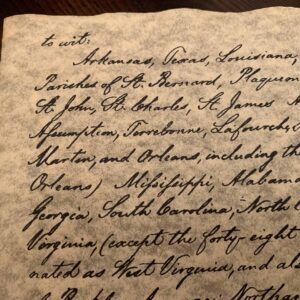 to wit:
Arkansas, Texas, Louisiana,
Parishes of St. Bernard, Plaquem
St. John, St. Charles, St. James
Assumption, Terrebonne, Lafourche,
Martin, and Orleans, including th
Orleans) Mississippi, Alabama
Georgia, South Carolina, North C
Virginia, (except the forty-eight
nated as West Virginia, and al